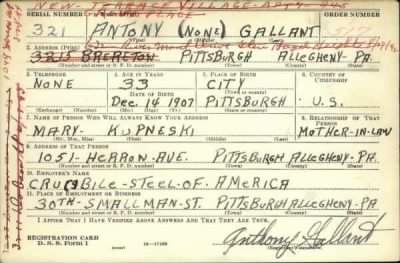 NEW-TERRACE VILLAGE-APT#
PLACE
SERIAL NUMBER ORDER NUMBER
321 ANTONY (NONE) GALLANT
(First) (Middle) (Last)
2. ADDRESS (Print)
BRERETON PITTSBURGH ALLEGHENY-PA.
(Number and street or R. F. D. number) (Town) (County) (State)
3. TELEPHONE 4. AGE IN YEARS 5. PLACE OF BIRTH 6. COUNTRY OF CITIZENSHIP
NONE 33 CITY
DATE OF BIRTH (Town or county)
DEC. 14 1907 PITTSBURGH U.S.
(Exchange) (Number) (Mo.) (Day) (Yr.) (State or country)
7. NAME OF PERSON WHO WILL ALWAYS KNOW YOUR ADDRESS 8. RELATIONSHIP OF THAT PERSON
MARY- KUPNESKI MOTHER-IN-LAW
(Mr., Mrs., Miss) (First) (Middle) (Last)
9. ADDRESS OF THAT PERSON
1051-HERRON-AVE. PITTSBURGH ALLEGHENY-PA.
(Number and street or R. F. D. number) (Town) (County) (State)
10. EMPLOYER'S NAME
CRUCIBLE-STEEL-OF-AMERICA
11. PLACE OF EMPLOYMENT OR BUSINESS
30TH-SMALLMAN-ST. PITTSBURGH ALLEGHENY-PA.
(Number and street or R. F. D. number) (Town) (County) (State)
I AFFIRM THAT I HAVE VERIFIED ABOVE ANSWERS AND THAT THEY ARE TRUE.
REGISTRATION CARD
D. S. S. Form 1 (over) 16-17105
Anthony Gallant
(Registrant's signature)